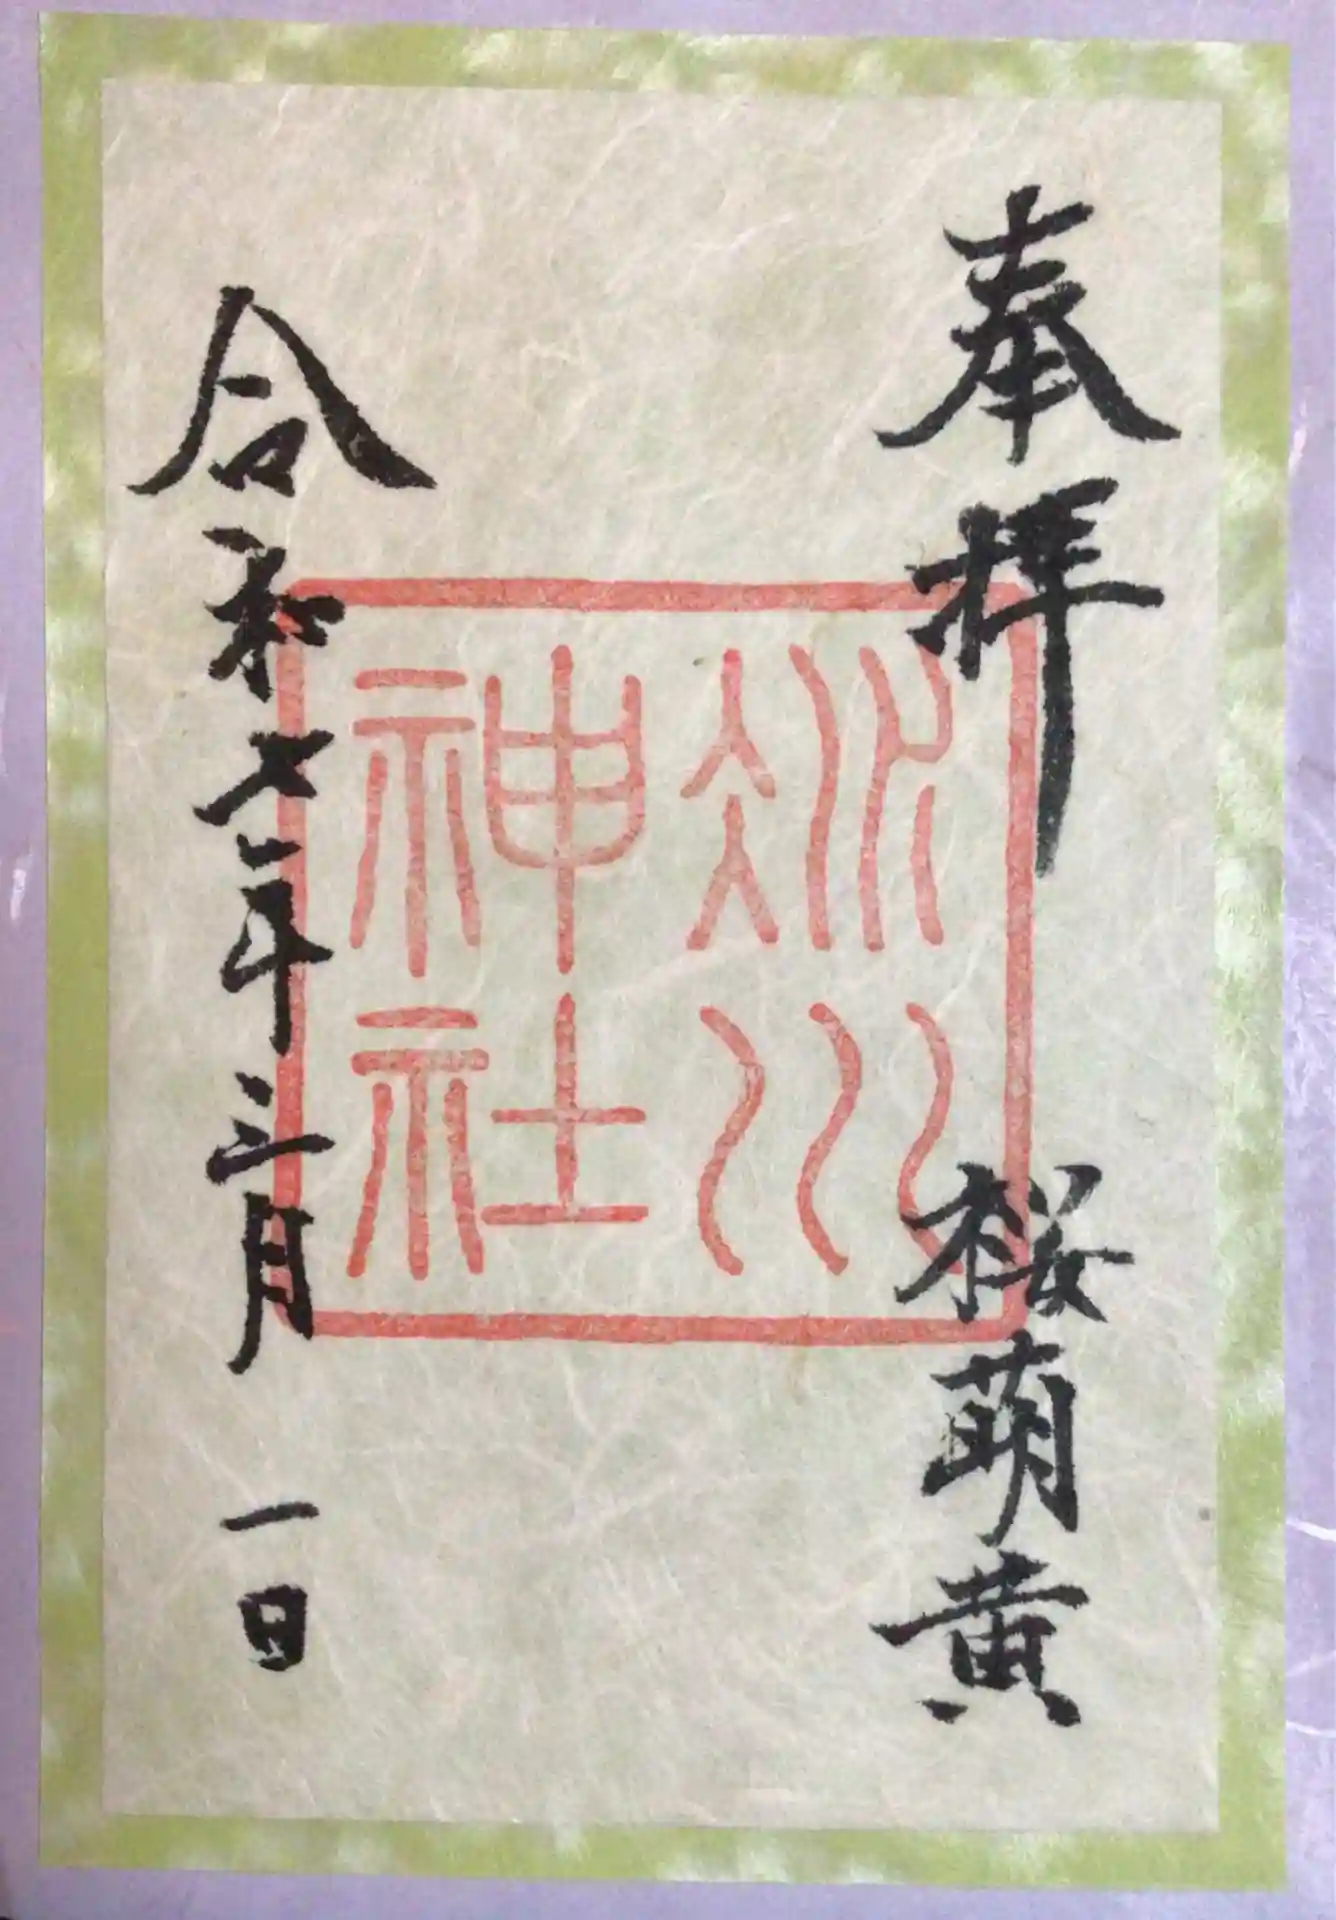 奉拝
桜萌黄
冰川
神社
令和七年三月一日